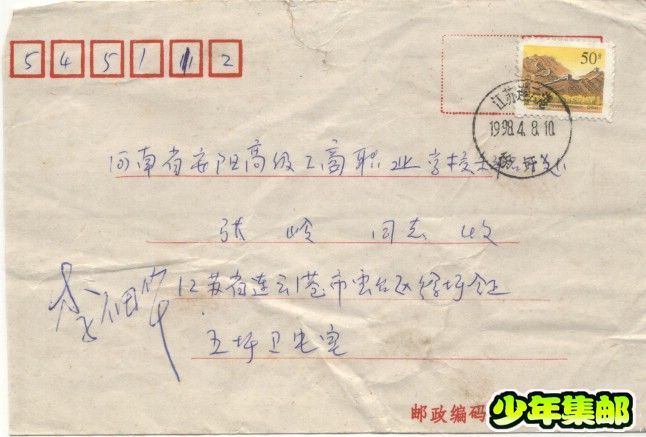 545112
50分
江苏连云港
1998.4.8.10
河南省安阳高级工商职业学校
张 岭 同志 收
江苏省连云港市云台区徐圩镇
五圩卫生室
邮政编码
少年集邮